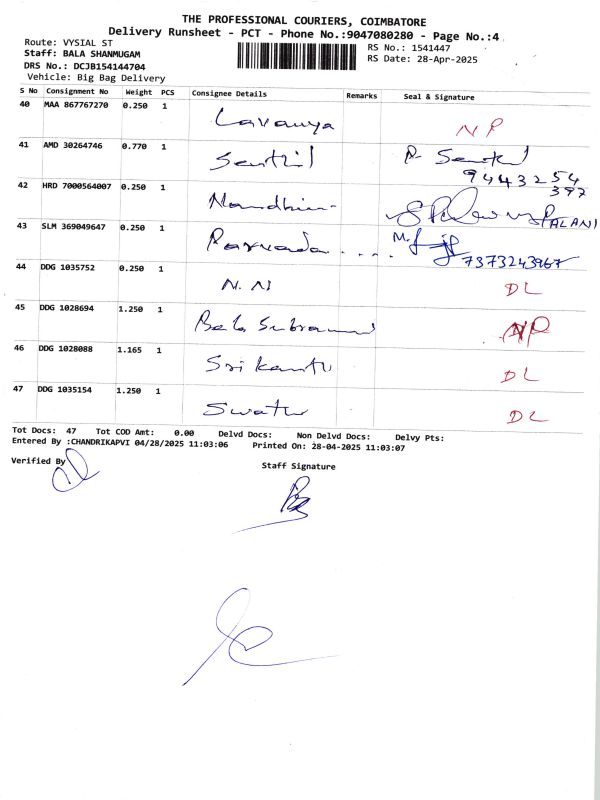 THE PROFESSIONAL COURIERS, COIMBATORE
Delivery Runsheet - PCT - Phone No.:9047080280 - Page No.:4
Route: VYSIAL ST RS No.: 1541447
Staff: BALA SHANMUGAM RS Date: 28-Apr-2025
DRS No.: DCJB154144704
Vehicle: Big Bag Delivery
S No Consignment No Weight PCS Consignee Details Remarks Seal & Signature
40 MAA 867767270 0.250 1 Lavanya NP
41 AMD 30264746 0.770 1 Senthil P. Senthil
9443254
397
42 HRD 7000564007 0.250 1 Nandhini PALANI
43 SLM 369049647 0.250 1 M. 7373243967
44 DDG 1035752 0.250 1 N. N DL
45 DDG 1028694 1.250 1 Bala Subramani NP
46 DDG 1028088 1.165 1 Srikanth DL
47 DDG 1035154 1.250 1 Swathi DL
Tot Docs: 47 Tot COD Amt: 0.00 Delvd Docs: Non Delvd Docs: Delvy Pts:
Entered By :CHANDRIKAPVI 04/28/2025 11:03:06 Printed On: 28-04-2025 11:03:07
Verified By
Staff Signature